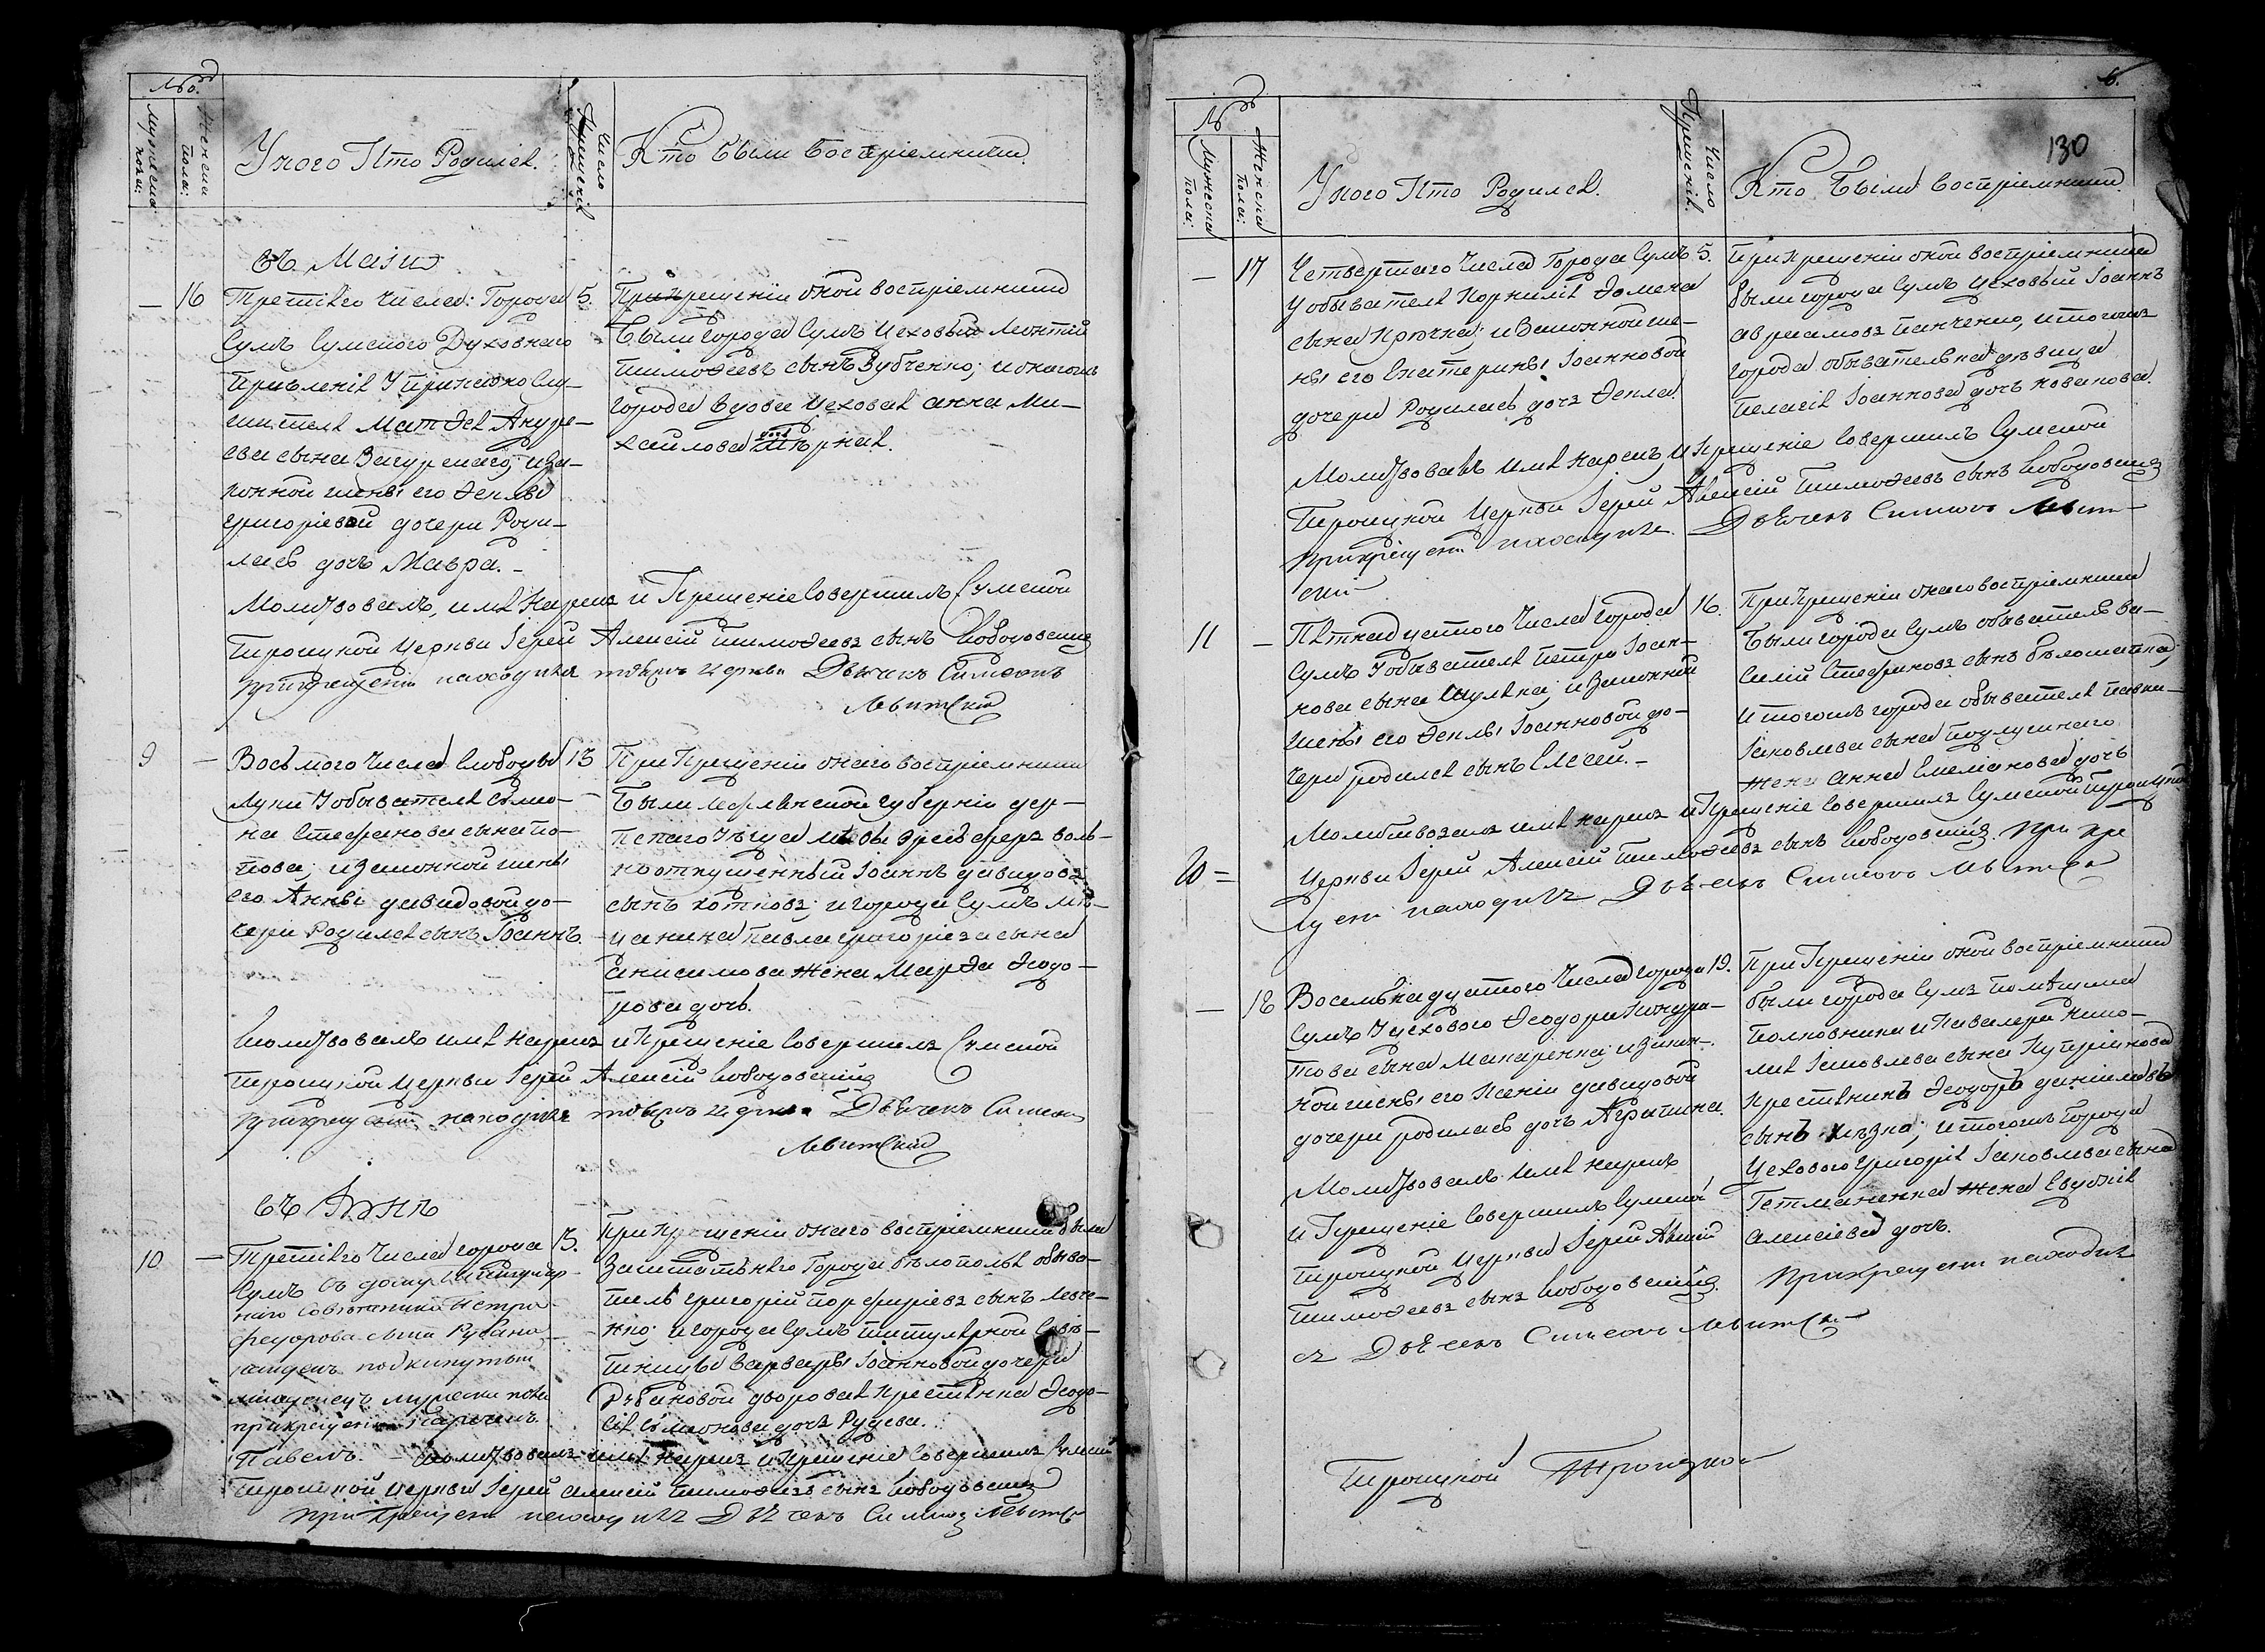 №
Мужеска пола:
Женска пола:
У кого Кто Родился.
Число Крещенія
Кто были Воспріемники.
въ Маіи
— 16 Третяго числа: Города
Сумъ Сумского Духовнаго
Правленія У
Матѳея Андре-
ева сына Загурскаго; и за-
конной жены его Ѳеклы
Григоріевой дочери Роди-
лась дочь Мавра. –
5. При крещеніи оной воспріемники
были города Сумъ цеховый Леонтій
Тимоѳеевъ сынъ Зубченко; и оногожъ
города вдова цеховая Анна Ми-
хайлова дочь
Молитвовалъ, имя нарекъ и Крещеніе совершилъ Сумской
Троицкой Церкви Іерей Алексій Тимоѳеевъ сынъ
при крещеніи находился тоеяжъ церкви Дьячекъ Симеонъ
Левитскій
9 — Восьмого числа слободы
Луки У обывателя Симео-
на Стефанова сына По-
пова; и законной жены
его Анны Давидовой до-
чери Родился сынъ Іоаннъ.
13 При Крещеніи онаго воспріемники
были губерніи дер-
воль-
ноотпущенный Іоаннъ Давидовъ
сынъ Котковъ; и города Сумъ мѣ-
щанина Павла Григоріева сына
Анисимова жена Марѳа Ѳеодо-
рова дочь.
Молитвовалъ имя нарекъ и Крещеніе совершилъ Сумской
Троицкой Церкви Іерей Алексій
при крещеніи находился тоеяжъ церкви Дьячекъ Симеонъ
Левитскій
въ Іюнѣ
10 — Третяго числа города
Сумъ въ дому Титуляр-
наго Совѣтника Петра
Федорова сына Рубана
найденъ подкинутый
младенецъ мужеска пола
при крещеніи нареченъ
Павелъ. –
5. При Крещеніи онаго воспріемники были
Заштатнаго Города Бѣлополья обыва-
тель Григорій Порфиріевъ сынъ Левче-
нко; и города Сумъ Титулярной Совѣт-
ницы Варвары Іоанновой дочери
Рубановой дворовая крестянка Ѳеодо-
сія Симеонова дочь Рудева.
Молитвовалъ имя нарекъ и Крещеніе совершилъ Сумской
Троицкой Церкви Іерей Алексій Тимоѳеевъ сынъ
при Крещеніи находился Дьячекъ Симеонъ Левитс
6.
130
№
Мужеска пола:
Женска пола:
У кого Кто Родился.
Число Крещенія.
Кто были воспріемники.
— 17 Четвертаго числа Города Сумъ
У обывателя Корнилія Ѳомена
сына Крючка; и законной же-
ны его Екатерины Іоанновой
дочери Родилась дочь Ѳекла.
5. При крещеніи оной воспріемники
были города Сумъ цеховый Іоаннъ
Авраамовъ Панченко, и тогожъ
города обывательская дѣвица
Пелагія Іоаннова дочь
Молитвовалъ имя нарекъ, и Крещеніе совершилъ Сумской
Троицкой Церкви Іерей Алексій Тимоѳеевъ сынъ
при крещеніи находился Дьячекъ Симеонъ Левит-
скій
11 — Пятнадцятого числа города
Сумъ У обывателя Петра Іоан-
нова сына и законной
жены его Ѳеклы Іоанновой до-
чери родился сынъ Елисей. –
16. При Крещеніи онаго воспріемники
были города Сумъ обыватель Ва-
силій Стефановъ сынъ
и тогожъ города обывателя Павла
Іаковлева сына
жена Анна Емеліанова дочь
Молитвовалъ имя нарекъ и Крещеніе совершилъ Сумской Троицкой
Церкви Іерей Алексій Тимоѳеевъ сынъ при кре
щеніи находился Дьячекъ Симеонъ Левитск
20 =
— 18 Восемьнадцятого числа города
Сумъ У цехового Ѳеодора Кондра-
това сына Макаренка; и закон-
ной жены его Ксеніи Давидовой
дочери родилась дочь Агрипина.
19. При Крещеніи оной воспріемники
были города Сумъ помѣщика
Полковника и Кавалера Нико-
лая Іаковлева сына
крестянинъ Ѳеодоръ Даніиловъ
сынъ и тогожъ города
Цехового Григорія Іаковлева сына
Гетманенка жена Евдокія
Алексіева дочь.
Молитвовалъ имя нарекъ
и Крещеніе совершилъ Сумской
Троицкой Церкви Іерей Алексій
Тимоѳеевъ сынъ при крещеніи находил
ся Дьячекъ Симеонъ Левитск
Троицкой Троицкой